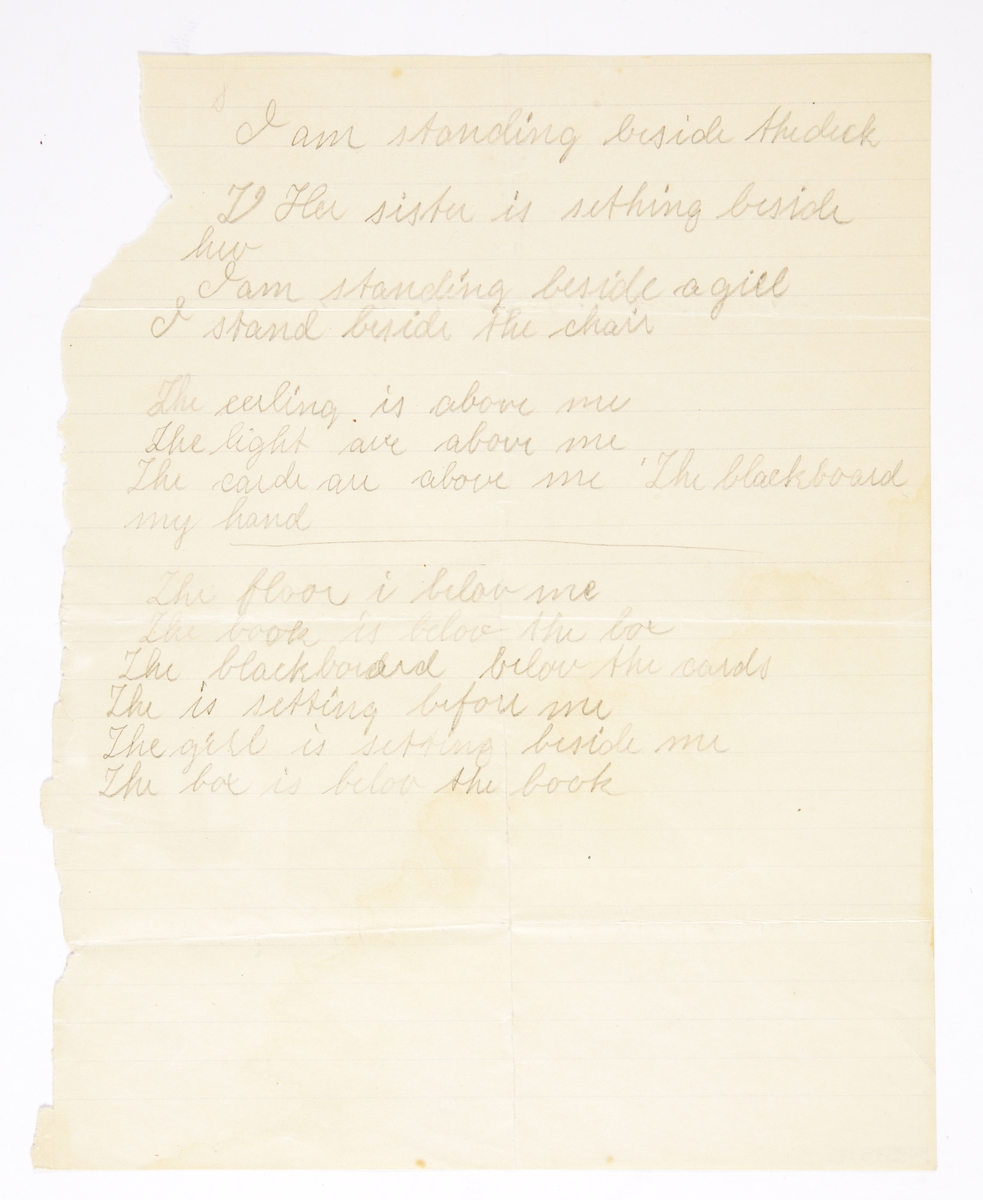 I am standing beside the deck
Her sister is sething beside
her
I am standing beside a giel
I stand beside the chair
The eerling is above me
The light are above me
The carde are above me The blackboard
my hand
The floor i belov me
The book is belov the boe
The blackboard belov the cards
The is setting before me
The girl is setting beside me
The boe is belov the book